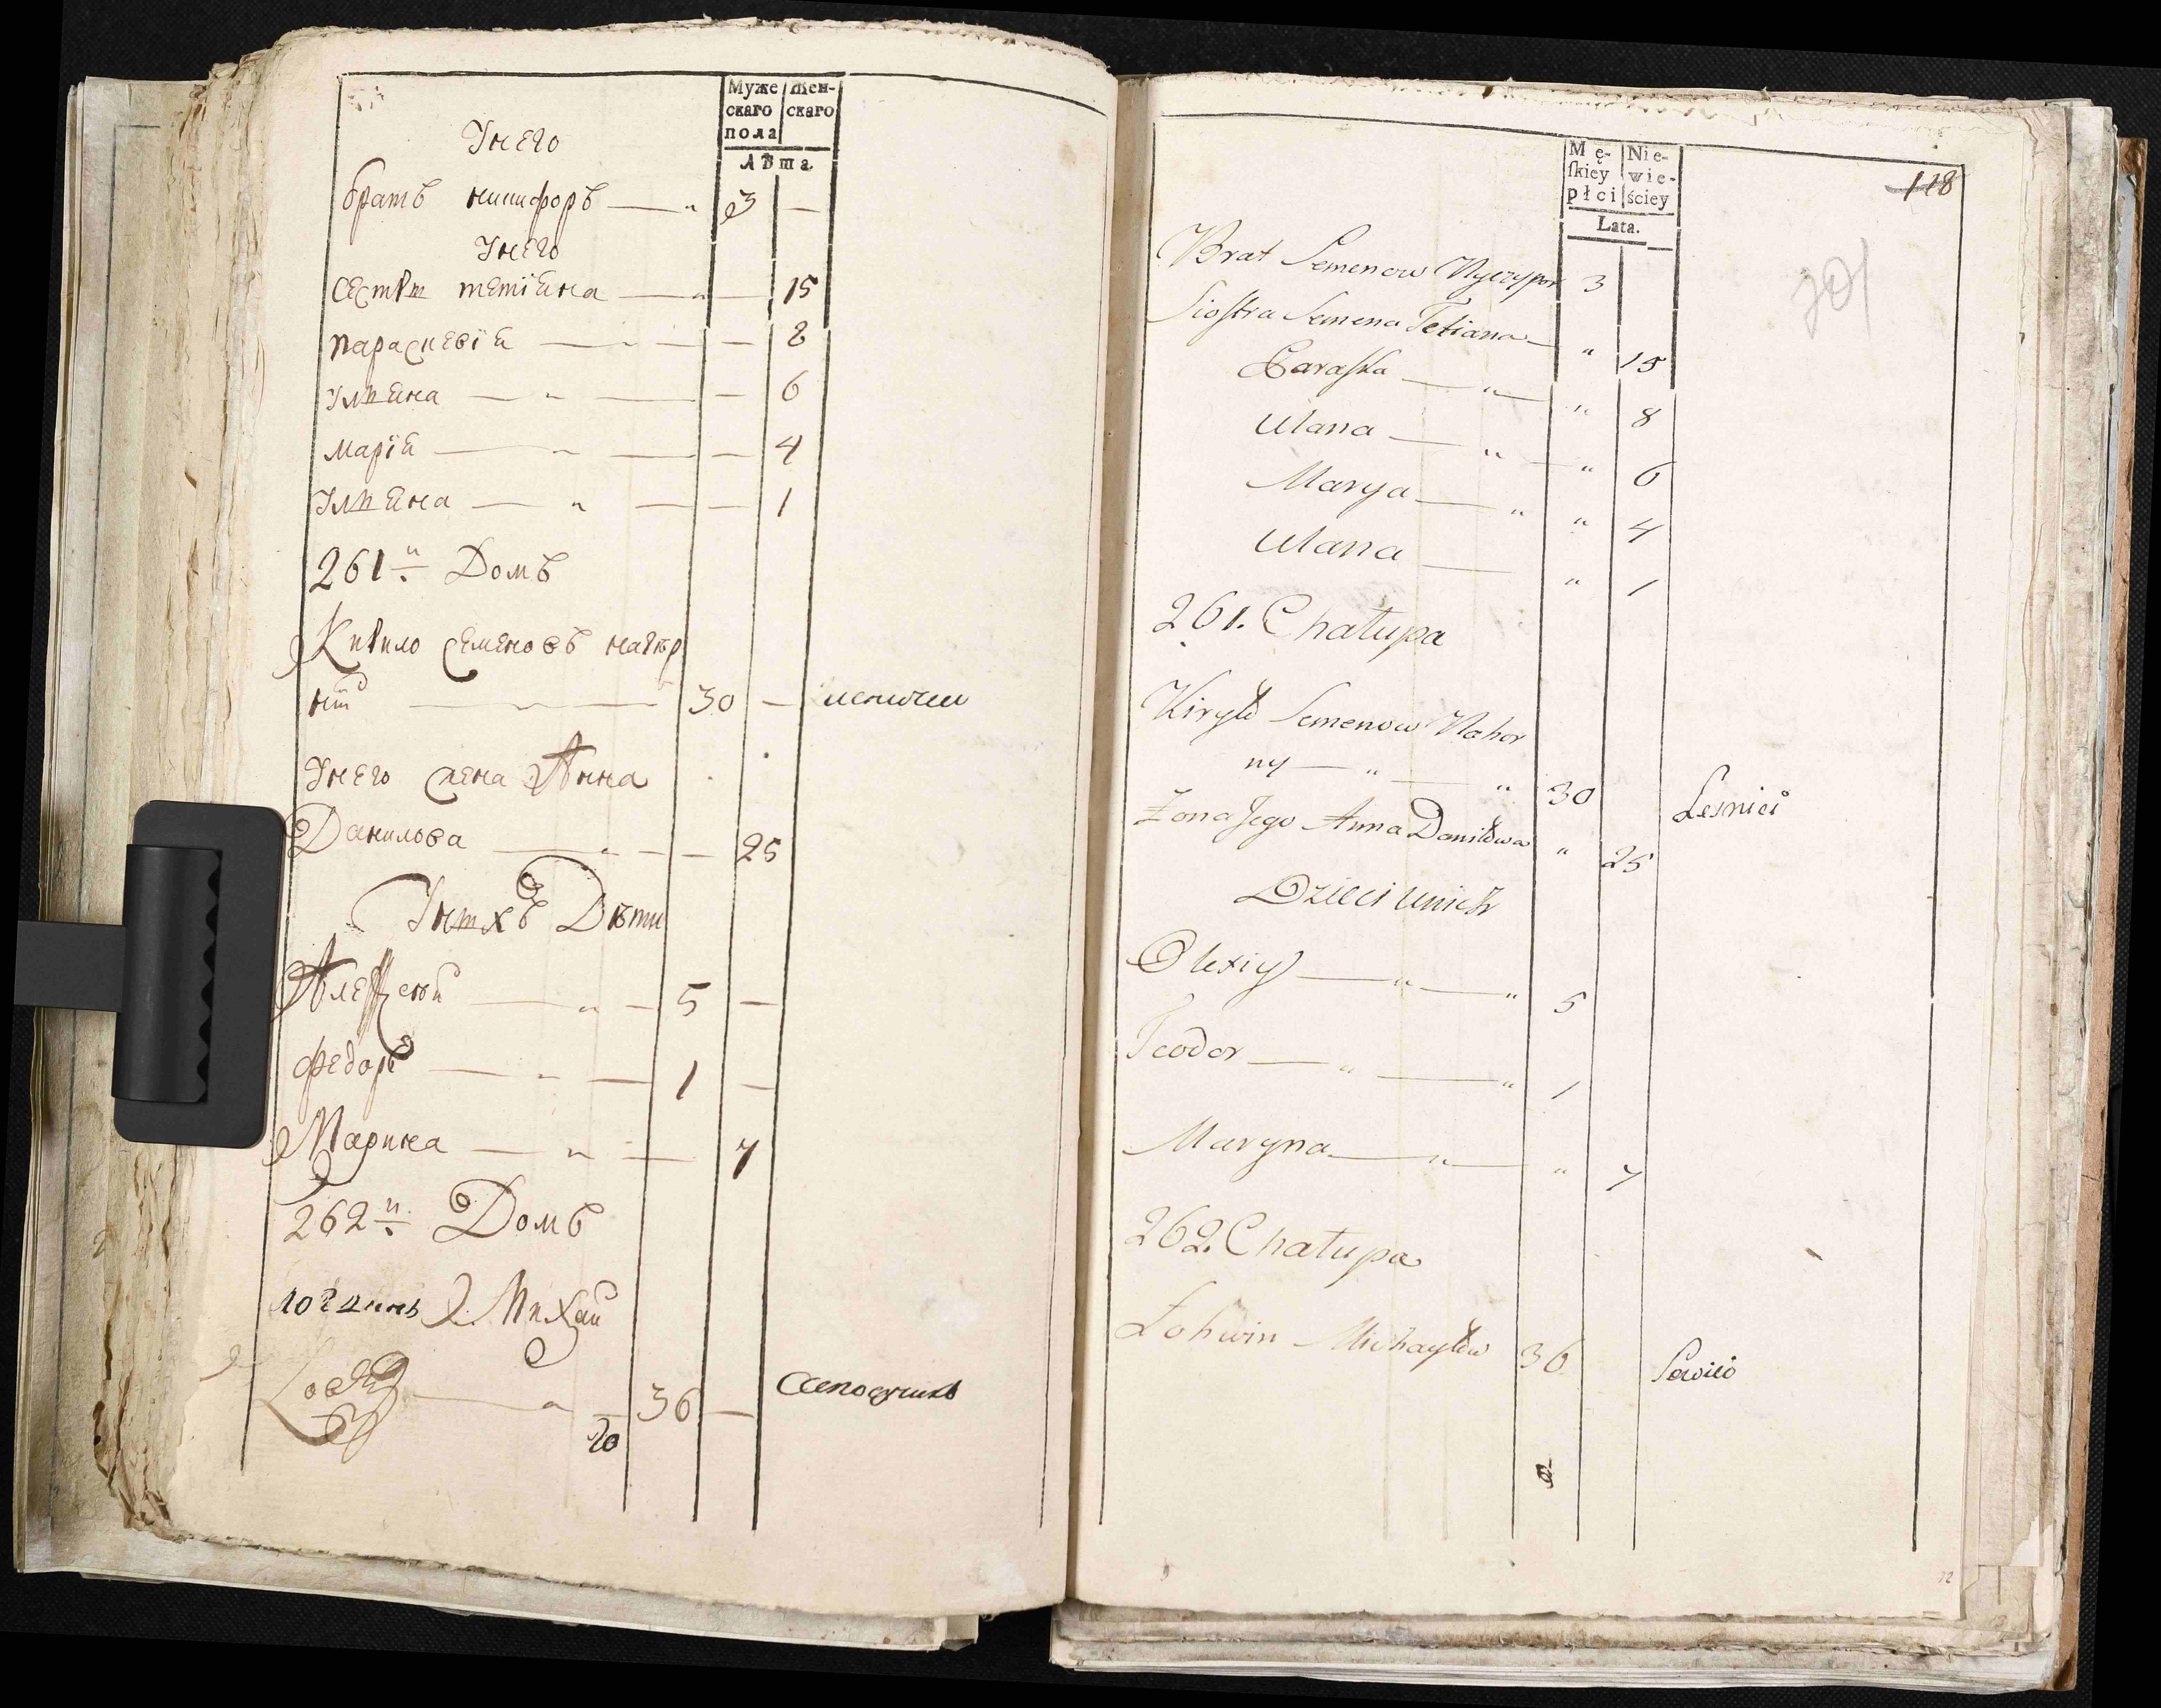 Муже Жен-
скаго скаго
пола
Лѣта
Унего
братъ никифоръ — 3 —
Унего
сестры тетіяна — — 15
параскевія — — 8
Улияна — — 6
марія — — 4
Улияна — — 1
261й Домъ
Кирило семеновъ нагор
ній — 30 —
Унего жена Анна
Данилова — — 25
Унихъ Дѣти
Алексей — 5 —
Федоръ — 1 —
Марина — — 7
262й Домъ
логдинъ Михай
ловъ — 36 —
20
Mę- Nie-
ſkiey wie-
płci ściey
Lata.
118
201
Brat Semenow Nyczypor 3
Siostra Semena Tetiana — " 15
Paraſka — " — " 8
Ulana — " — " 6
Marya — " " 4
Ulana — " 1
261. Chałupa
Kiryło Semenow Nahor
ny — " — " 30 Lesniei
Żona Jego Anna Daniłowa " 25
Dzieci Unich
Olexiy — " — " 5
Teodor — " — " 1
Maryna — " — " 7
262. Chałupa
Łohwin Michayłow 36